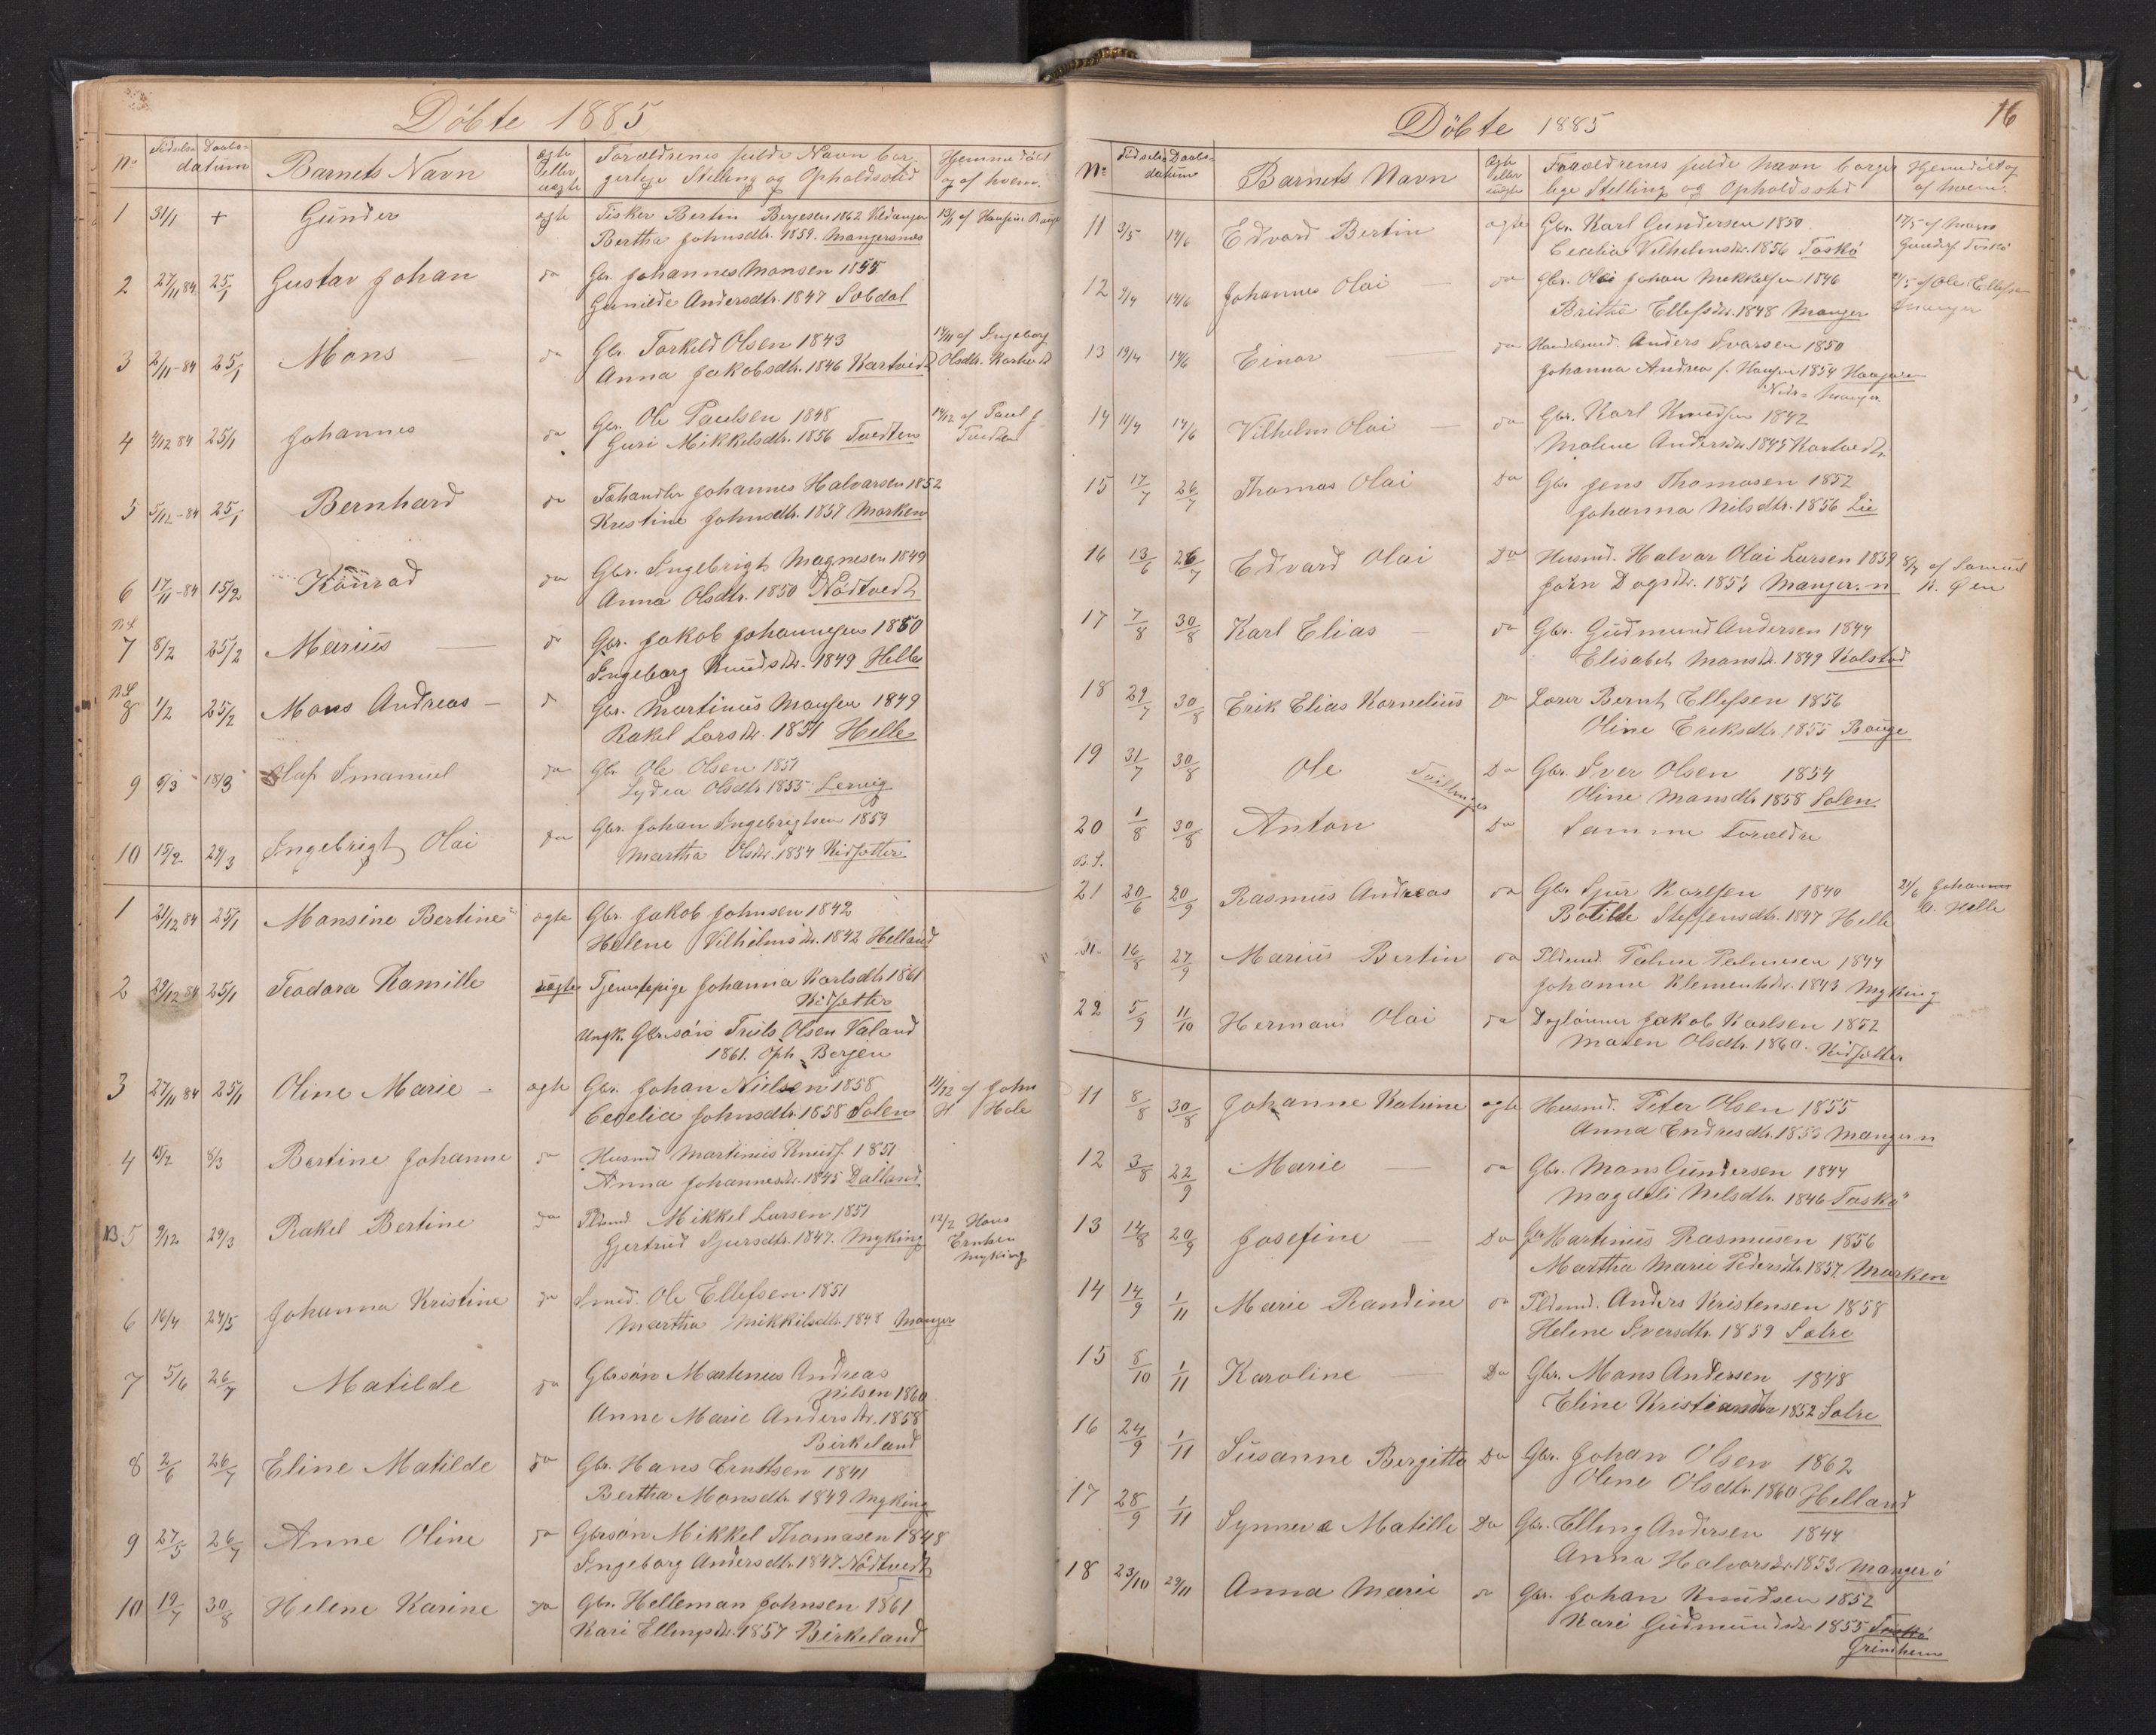 Döbte 1885
No Födsels Daabs- datum Barnets Navn ægte eller uægte Forældrenes fulde Navn bor- gerlige Stilling og Opholdssted Hjemmedöbt og af hvem.
1 31/1 + Gunder ægte Fisker Bertin Berjesen 1862
Bertha Johnsdtr. 1859. Mangersnes
2 27/11 84 25/1 Gustav Johan do Gbr. Johannes Monsen 1855
Gunilde Andersdtr. 1847 Sobdal
3 2/11-84 25/1 Mons — do Gbr. Torkild Olsen 1843 14/11 af Ingeborg
Anna Jakobsdtr. 1846 Kartveit Olsdtr. Kartveit
4 4/12 84 25/1 Johannes do Gbr. Ole Paulsen 1848 14/12 af Paul J.
Guri Mikkelsdtr. 1856 Tuedten Tuedten
5 5/12-84 25/1 Bernhard do Johannes Halvarsen 1852
Kristine Johnsdtr. 1857 Marken
6 17/11-84 15/2 Konrad do Gbr. Ingebrigt Magnesen 1849
Anna Olsdtr. 1850 Nödtvedt
7 8/2 25/2 Marius — do Gbr. Jakob Johannessen 1850
Ingeborg Knudsdtr. 1849 Helle
8 1/2 25/2 Mons Andreas — d Gbr. Martinus Monsen 1849
Rakel Larsdtr. 1851 Helle
9 5/3 18/3 Olaf Imanuel do Gbr. Ole Olsen 1851
Lydea Olsdtr 1855 Lervig
10 15/2 29/3 Ingebrigt Olai do Gbr. Johan Ingebrigtsen 1859
Martha Olsdtr. 1854 Kidsætter
1 21/12 84 25/1 Monsine Bertine ægte Gbr. Jakob Johnsen 1842
Helene Vilhelmsdtr. 1842 Helland
2 29/12 84 25/1 Teodora Kamille uægte Tjenestepige Johanna Karlsdtr 1861
Kidsætter
Ungk. Gbrsön Truls Olsen Valand
1861. Oph. Bergen
3 27/11 84 25/1 Oline Marie - ægte Gbr. Johan Nielsen 1858 11/12 af John
Cecelia Johnsdtr. 1858 Solen H Hole
4 15/2 8/3 Bertine Johanne do Husmd Martinus Knuds. 1851
Anna Johannesdtr. 1845 Dalland
5 9/12 29/3 Rakel Bertine do Pldsmd. Mikkel Larsen 1851 12/2 Hans
Gjertrud Sjursdtr. 1847. Myking Ernhen
Myking
6 16/4 24/5 Johanna Kristine do Smed. Ole Ellefsen 1851
Martha Mikkelsdtr. 1848 Manger
7 5/6 26/7 Matilde do Gbrsön Martenus Andreas
Nilsen 1860
Anne Marie Andersdtr. 1858
Birkeland
8 2/6 26/7 Eline Matilde do Gbr. Hans Erntsen 1841
Bertha Monsdtr. 1849 Myking
9 27/5 26/7 Anne Oline do Gbrsön Mikkel Thomasen 1848
Ingeborg Andersdtr. 1847. Nödtvedt
10 19/7 30/8 Helene Karine do Gbr. Helleman Johnsen 1861
Kari Ellingsdtr. 1857 Birkeland
16
Döbte 1885
No Födsels Daabs- datum Barnets Navn Ægte eller uægte Forældrenes fulde Navn borger lige Stilling og Opholdssted Hjemedöbt og af hvem.
11 3/5 14/6 Edvard Bertin ægte Gbr. Karl Gundersen 1850. 17/5 af Mons
Cecelia Vilhelmsdtr. 1856 Toskö Toskö
12 9/4 14/6 Johannes Olai — do Gbr. Olai Johan Mekkelsen 1846 af Ole Ellefsen
Britha Ellefsdtr. 1848 Manger Manger
13 19/4 14/6 Einar do Handelsmd. Anders Ivarsen 1850
Johanna Andrea f. Hansen 1854
Nedre Manger.
14 11/4 14/6 Vilhelm Olai — do Gbr. Karl Knudsen 1842
Maline Andersdtr. 1845 Kartvedt
15 17/7 26/7 Thomas Olai Do Gbr Jens Thomasen 1852
Johanna Nilsdtr. 1856 Lie
16 13/6 26/7 Edvard Olai Do Husmd. Halvor Olai Larsen 1859 8/7 af Samuel
Jörn Dagsdtr. 1853 Manger. n N. Öen
17 7/8 30/8 Karl Elias — do Gbr. Gudmund Andersen 1844
Elisabet Monsdtr. 1849 Kolstad
18 29/7 30/8 Erik Elias Kornelius Do Lærer Bernt Ellefsen 1856
Oline Eriksdtr. 1855 Bauge
19 31/7 30/8 Ole Tvillinger Do Gbr. Iver Olsen 1854
Oline Monsdtr 1858 Solen.
20 1/8 30/8 Anton Do Samme Forældre
21 20/6 20/9 Rasmus Andreas do Gbr Sjur Karlsen 1840 21/6 Johannes
Botilde Steffensdtr. 1847 Helle Helle
16/8 27/9 Marius Bertin do Pldsmd. Palme Palmesen 1844
Johanne Klementsdtr. 1843 Myking
22 5/9 11/10 Herman Olai do Daglönner Jakob Karlsen 1852
Maren Olsdtr. 1860. Kidsætter
11 8/8 30/8 Johanne Katrine ægte Husmd. Peter Olsen 1855
Anna Endresdtr. 1853 Manger n
12 3/8 22/9 Marie — do Gbr. Mons Gundersen 1844
Magdeli Nelsdtr. 1846 Toskö
13 14/8 20/9 Josefine — Do Gbr Martinus Rasmusen 1856
Martha Marie Pedersdtr. 1857 Marken
14 14/9 1/11 Marie Randine do Pldsmd. Anders Kristensen 1858
Helene Iversdtr. 1859 Sætre
15 8/10 1/11 Karoline — Do Gbr. Mons Andersen 1848
Eline Kristiansdtr 1852 Sætre
16 24/9 1/11 Susanne Bergitta Do Gbr. Johan Olsen 1862
Olene Olsdtr. 1860 Helland
17 28/9 1/11 Synneva Matille Do Gbr. Elling Andersen 1844
Anna Halvorsdtr. 1853 Manger ö
18 23/10 29/11 Anna Marie do Gbr. Johan Knudsen 1852
Kari Gudmundsdtr 1855 Toskö
Grindheim